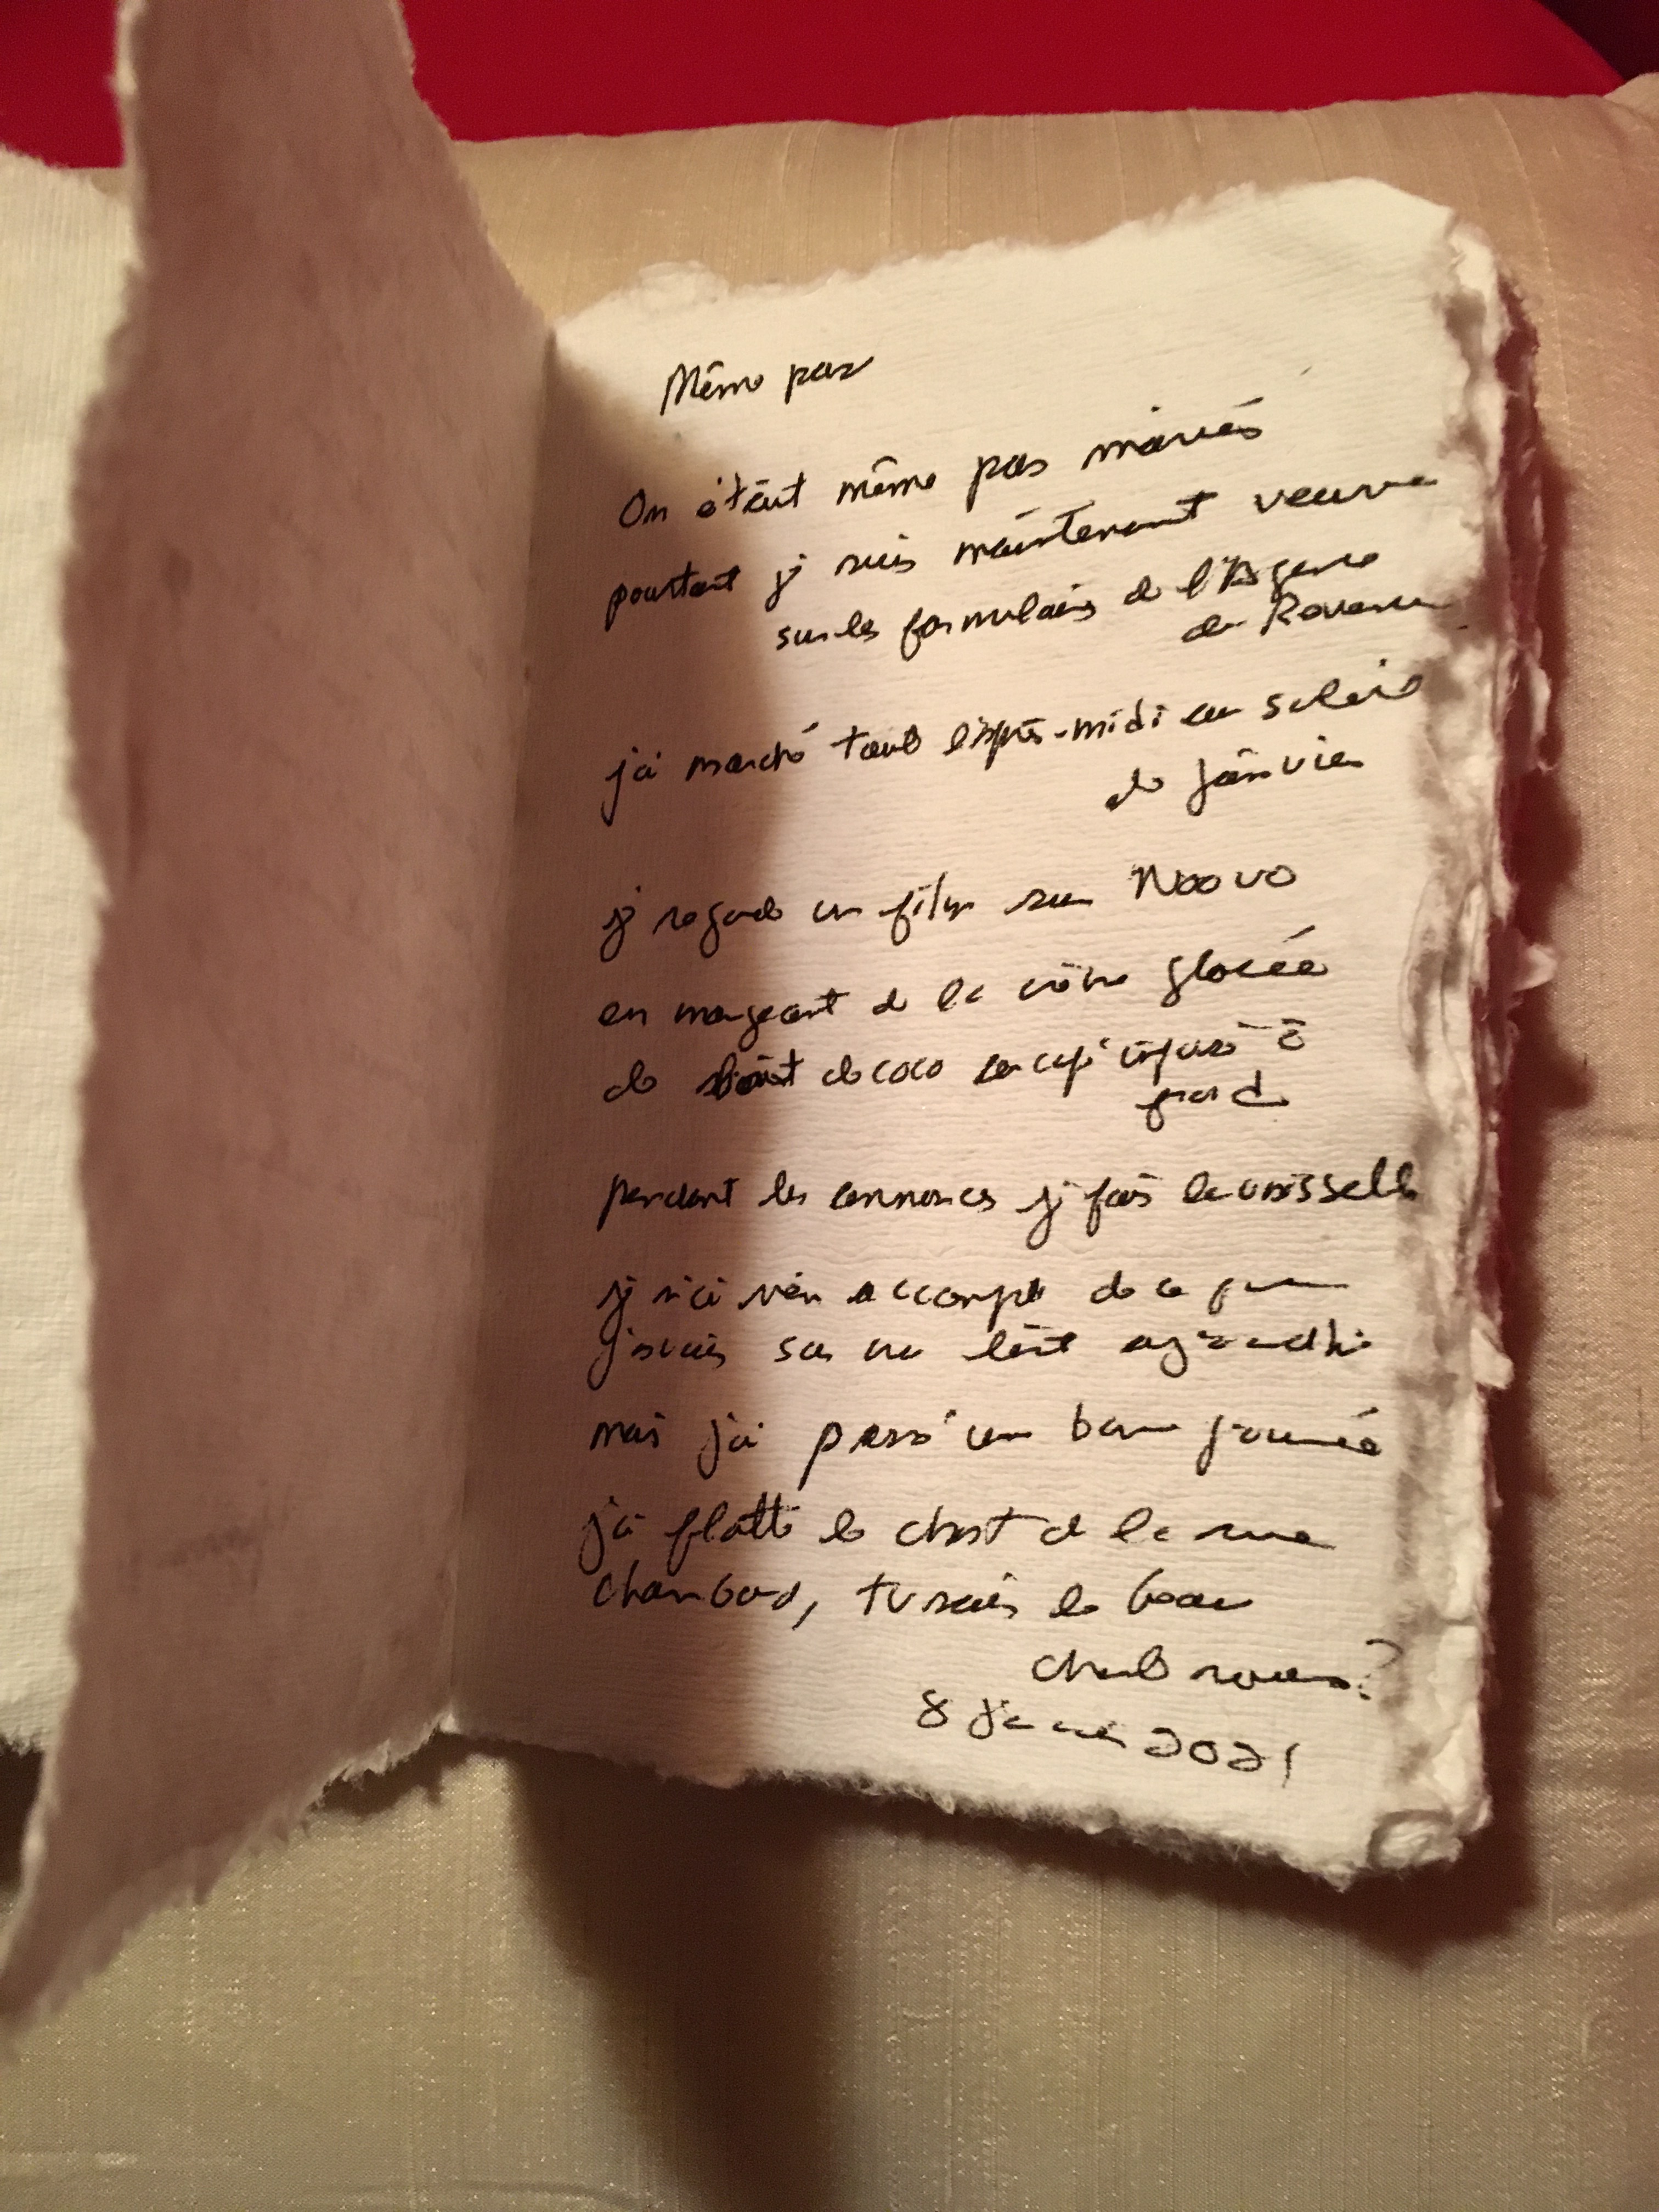 Même pas
On était même pas mariés
pourtant je suis maintenant veuve
sur les formulaires de l'Agence
du Revenu
j'ai marché tout l'après-midi au soleil
de janvier
je regarde un film sur Noovo
en mangeant de la crème glacée
de lait de coco au café infusé à
froid
pendant les annonces je fais la vaisselle
je n'ai rien accompli de ce que
j'avais sur ma liste aujourd'hui
mais j'ai passé une bonne journée
j'ai flatté le chat de la rue
Chambord, tu sais le beau
chat roux?
8 janvier 2021